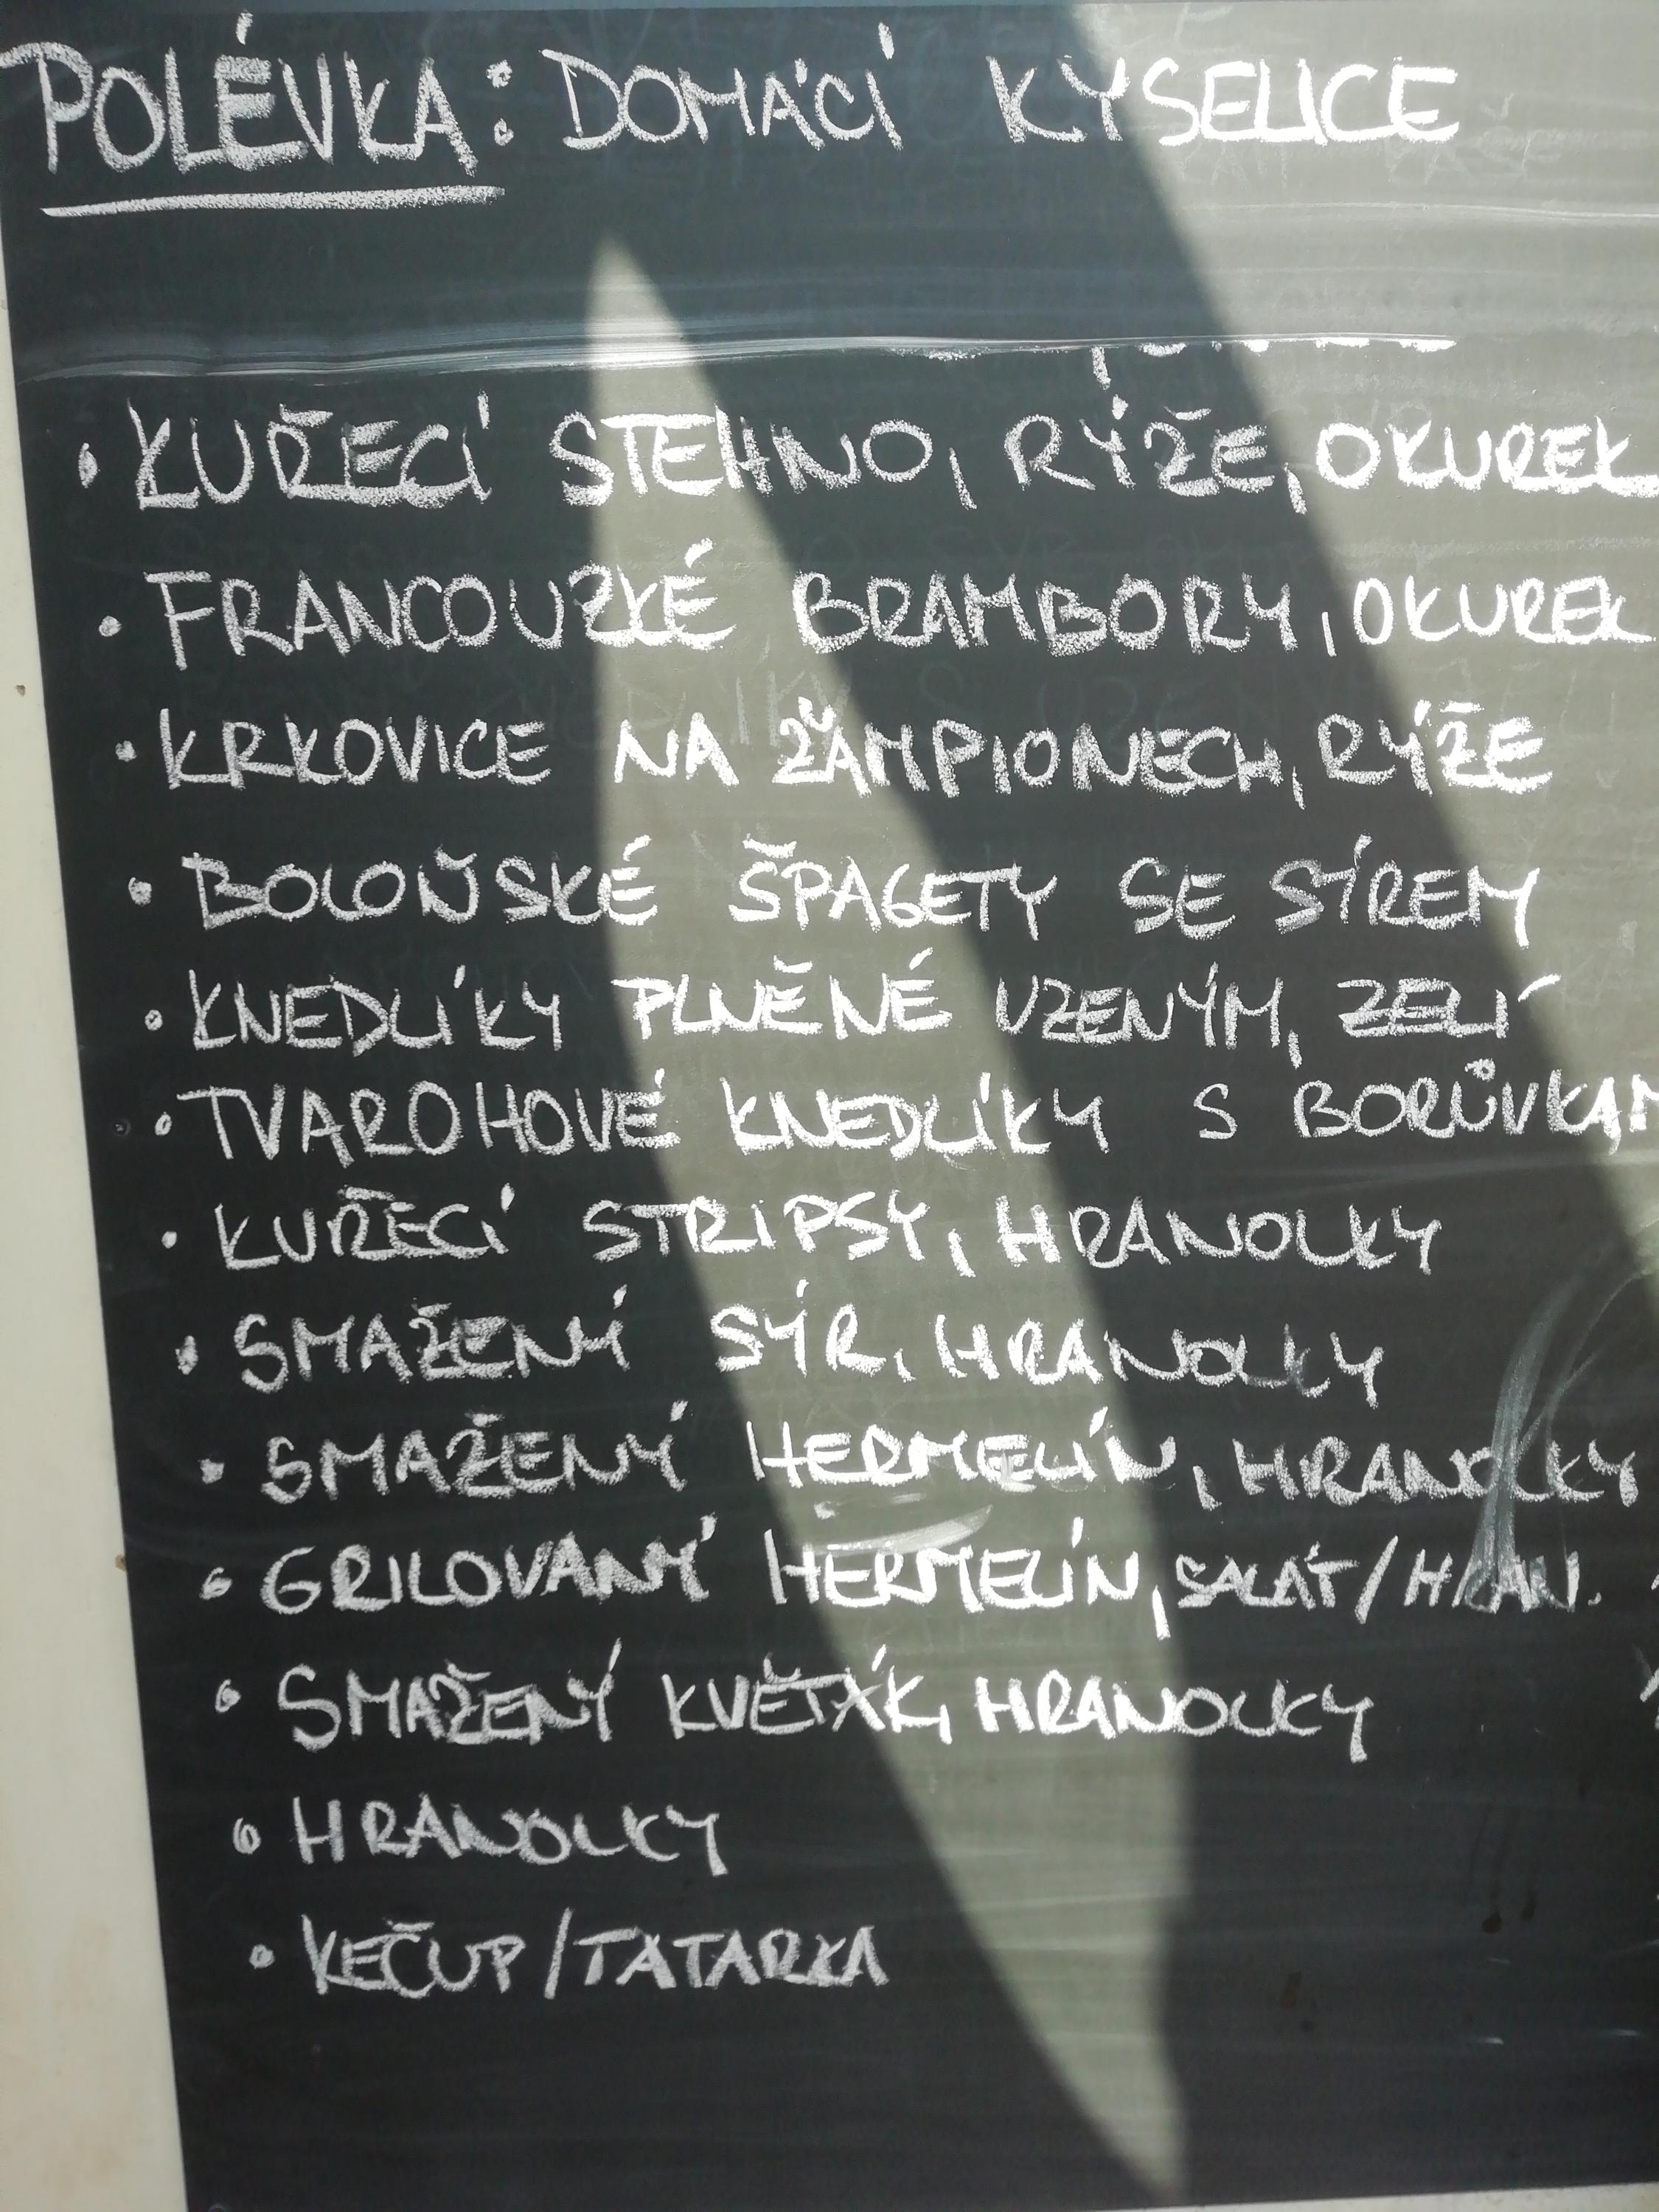 POLÉVKA: DOMÁCÍ KYSELICE
• KUŘECÍ STEHNO, RÝŽE, OKUREK
• FRANCOUZKÉ BRAMBORY, OKUREK
• KRKOVICE NA ŽAMPIONECH, RÝŽE
• BOLOŇSKÉ ŠPAGETY SE SÍREM
• KNEDLÍKY PLNĚNÉ UZENÝM, ZELÍ
• TVAROHOVÉ KNEDLÍKY S BORŮVKAM
• KUŘECÍ STRIPSY, HRANOLKY
• SMAŽENÝ SÝR, HRANOLKY
• SMAŽENÝ HERMELÍN, HRANOLKY
• GRILOVANÝ HERMELÍN, SALÁT/HRAN.
• SMAŽENÝ KVĚTÁK, HRANOLKY
• HRANOLKY
• KEČUP/TATARKA